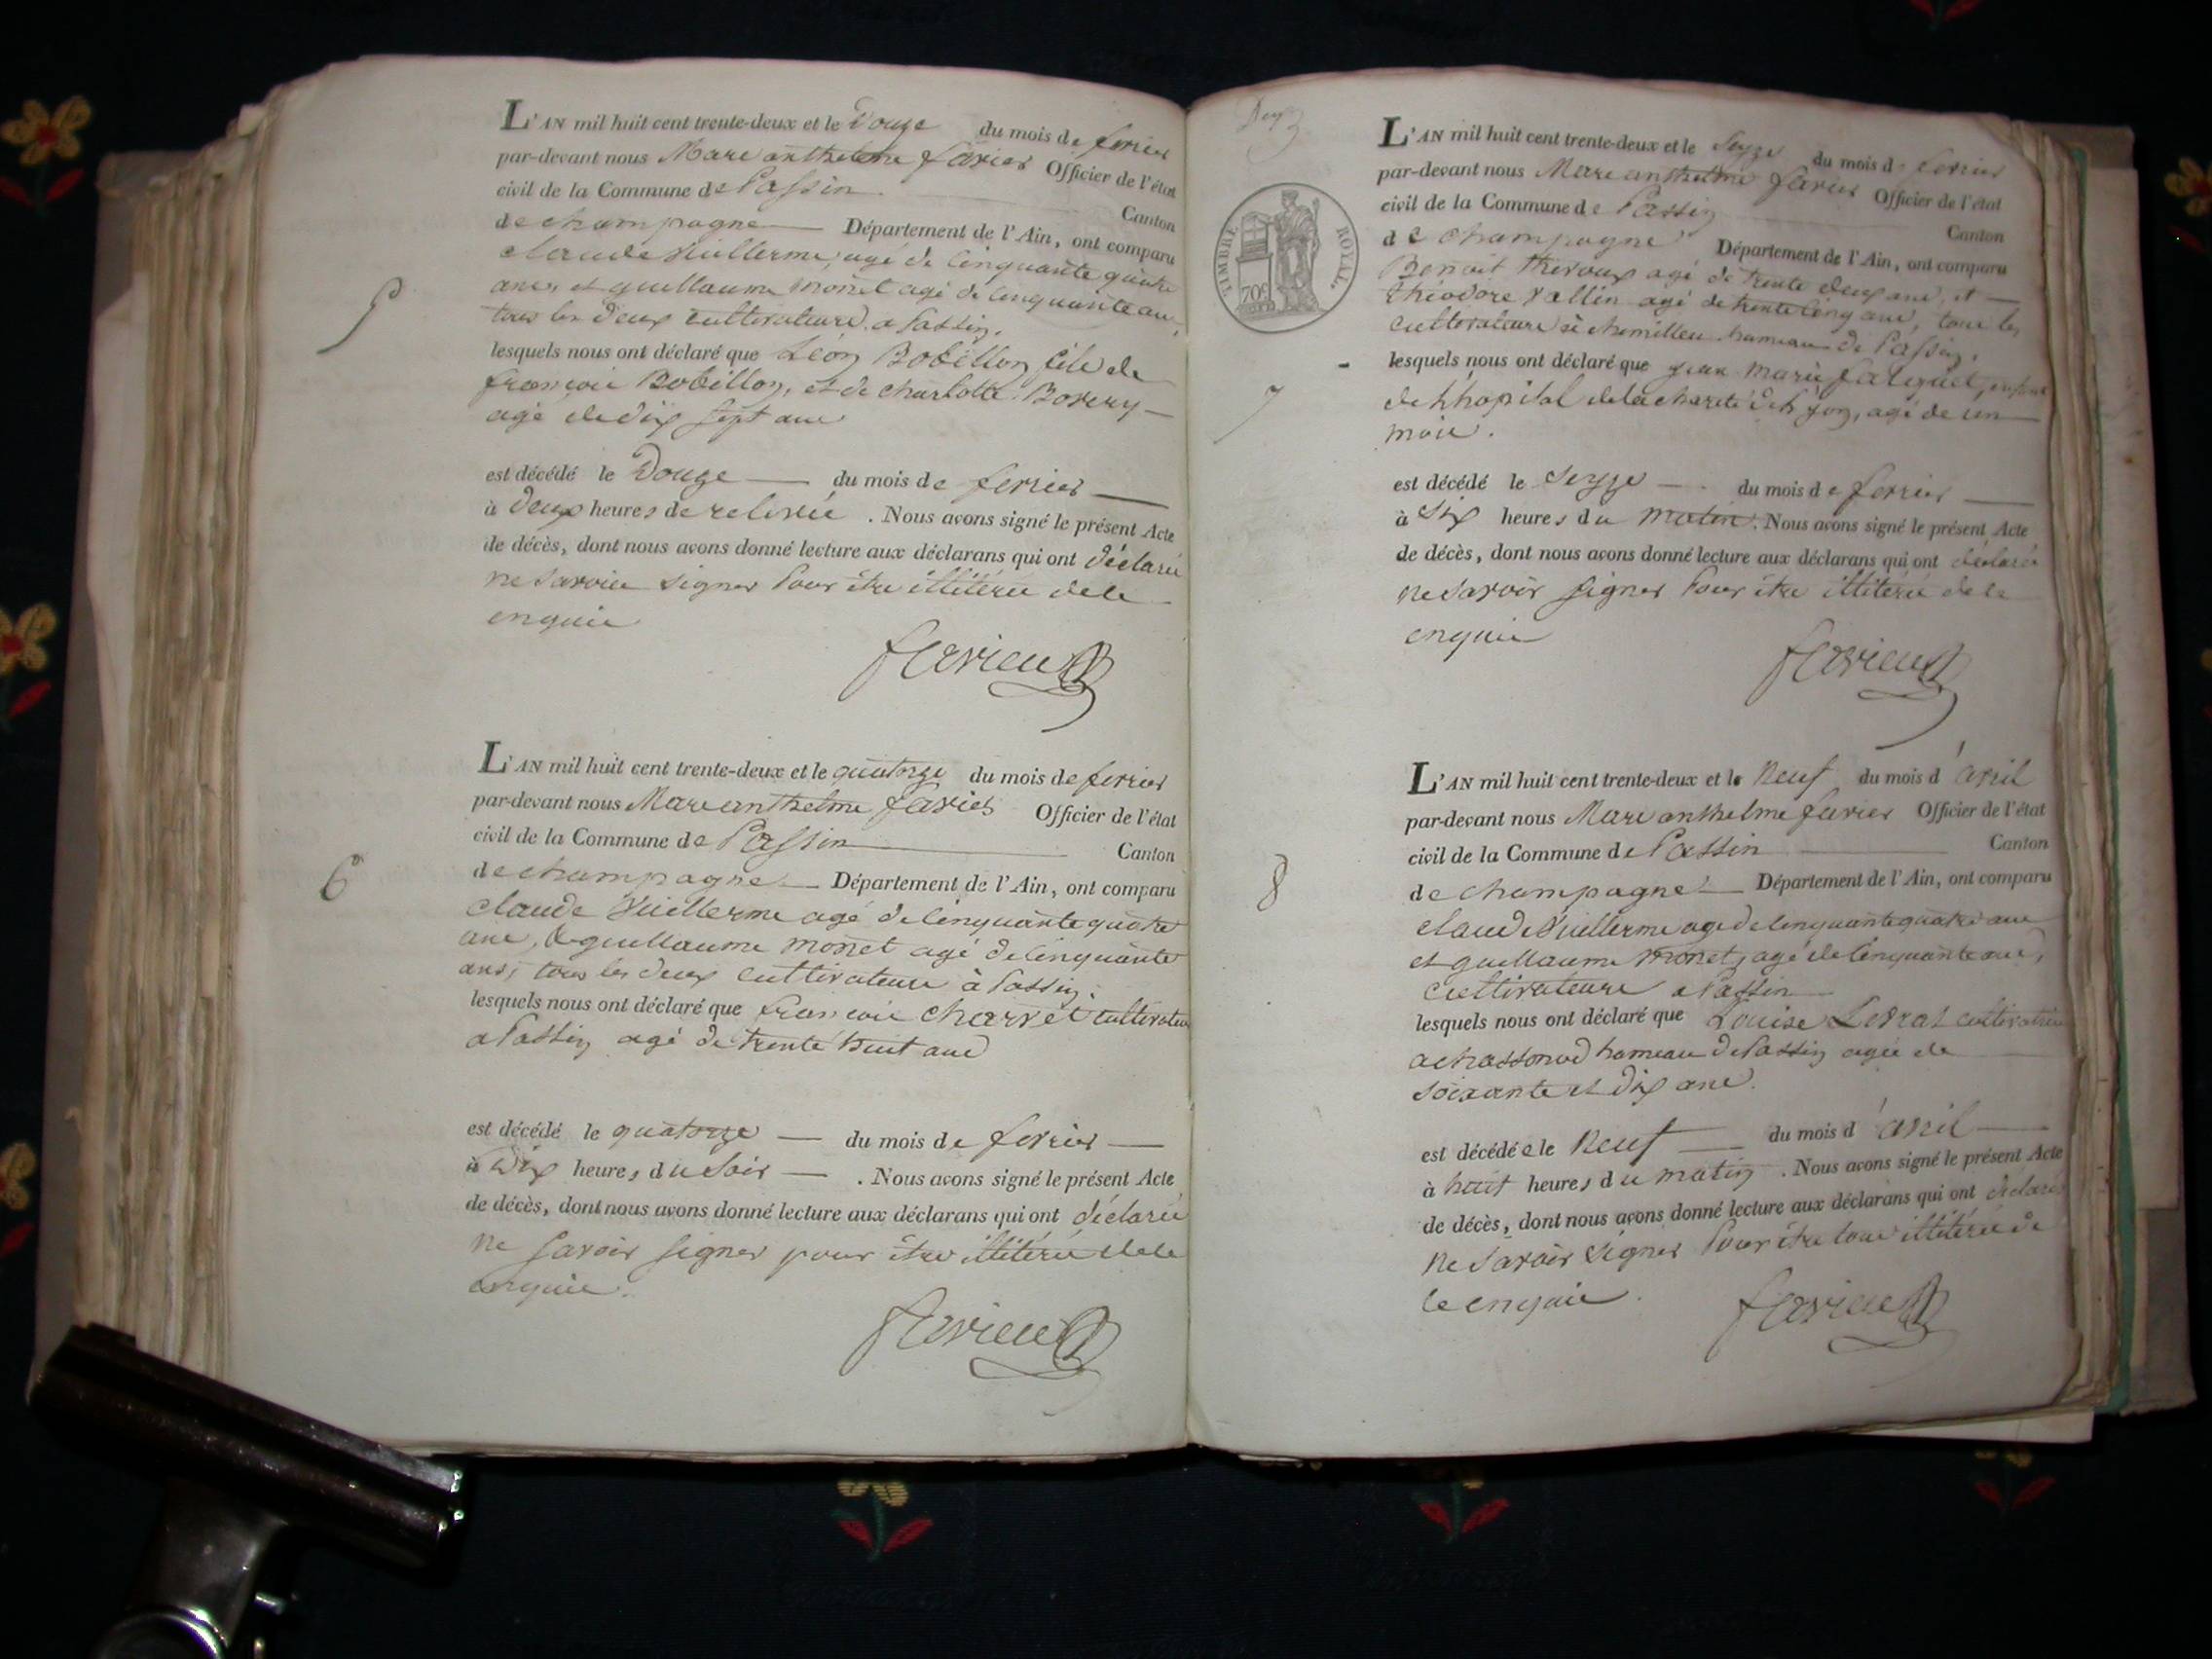 L'AN mil huit cent trente-deux et le Douze du mois de fevrier
par-devant nous Marc anthelme favier Officier de l'état
civil de la Commune de Passin
Canton
de champagne Département de l'Ain, ont comparu
claude Vuillerme, agé de cinquante quatre
ans, et guillaume monet agé de cinquante ans,
tous les deux cultivateurs a Passin,
lesquels nous ont déclaré que Léon Bobillon fils de
françois Bobillon, et de charlotte Borery
agé de dix sept ans
5
est décédé le Douze du mois de fevrier
à deux heures de relevée . Nous avons signé le présent Acte
de décès, dont nous avons donné lecture aux déclarans qui ont déclaré
ne savoir signer Pour être illitéré de le
enquis
favier
L'AN mil huit cent trente-deux et le quatorze du mois de fevrier
par-devant nous Marc anthelme favier Officier de l'état
civil de la Commune de Passin
Canton
6
de champagne Département de l'Ain, ont comparu
claude Vuillerme agé de cinquante quatre
ans, & guillaume monet agé de cinquante
ans, tous les deux cultivateurs à Passin.
lesquels nous ont déclaré que françois charvet cultivateur
a Passin agé de trente huit ans
est décédé le quatorze du mois de fevrier
à dix heures du soir . Nous avons signé le présent Acte
de décès, dont nous avons donné lecture aux déclarans qui ont déclaré
ne savoir signer pour être illitéré de le
enquis.
favier
TIMBRE ROYAL
70c
L'AN mil huit cent trente-deux et le seyze du mois de fevrier
par-devant nous Marc anthelme favier Officier de l'état
civil de la Commune de Passin
Canton
de champagne Département de l'Ain, ont comparu
Benoit agé de trente deux ans, et
théodore Vallin agé de trente cinq ans, tous les
cultivateurs à chemilleu hameau de Passin,
lesquels nous ont déclaré que jean marie
7
de l'hopital de la charité de lyon, agé de un
mois.
est décédé le seyze du mois de fevrier
à six heures du matin. Nous avons signé le présent Acte
de décès, dont nous avons donné lecture aux déclarans qui ont déclaré
ne savoir signer Pour être illitéré de le
enquis
favier
L'AN mil huit cent trente-deux et le neuf du mois d'avril
par-devant nous Marc anthelme favier Officier de l'état
civil de la Commune de Passin
Canton
8
de champagne Département de l'Ain, ont comparu
claude Vuillerme agé de cinquante quatre ans
et guillaume monet, agé de cinquante ans,
cultivateurs a Passin
lesquels nous ont déclaré que Louise Levrat cultivatrice
a chassonod hameau de Passin agée de
soixante et dix ans.
est décédée le neuf du mois d'avril
à huit heures du matin . Nous avons signé le présent Acte
de décès, dont nous avons donné lecture aux déclarans qui ont déclaré
ne savoir signer Pour être tous illitéré de
le enquis.
favier